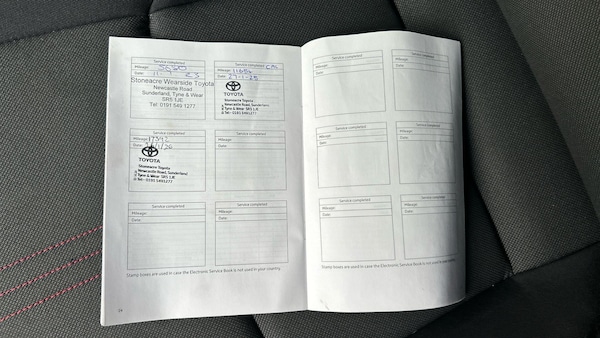 Service completed
Mileage:
Date: 11
23
Stoneacre Wearside Toyota
Newcastle Road
Sunderland, Tyne & Wear
SR5 1JE
Tel: 0191 549 1277
Service completed
Mileage:
Date: 27-1-25
TOYOTA
Stoneacre Toyota
Newcastle Road, Sunderland
Tyne & Wear SR5 1JE
Tel: 0191 5491277
Service completed
Mileage:
Date:
TOYOTA
Stoneacre Toyota
Newcastle Road, Sunderland
Tyne & Wear SR5 1JE
Tel: 0191 5491277
Service completed
Mileage:
Date:
Service completed
Mileage:
Date:
Service completed
Mileage:
Date:
Stamp boxes are used in case the Electronic Service Book is not used in your country.
Service completed
Mileage:
Date:
Service completed
Mileage:
Date:
Service completed
Mileage:
Date:
Service completed
Mileage:
Date:
Service completed
Mileage:
Date:
Service completed
Mileage:
Date:
Stamp boxes are used in case the Electronic Service Book is not used in your country.